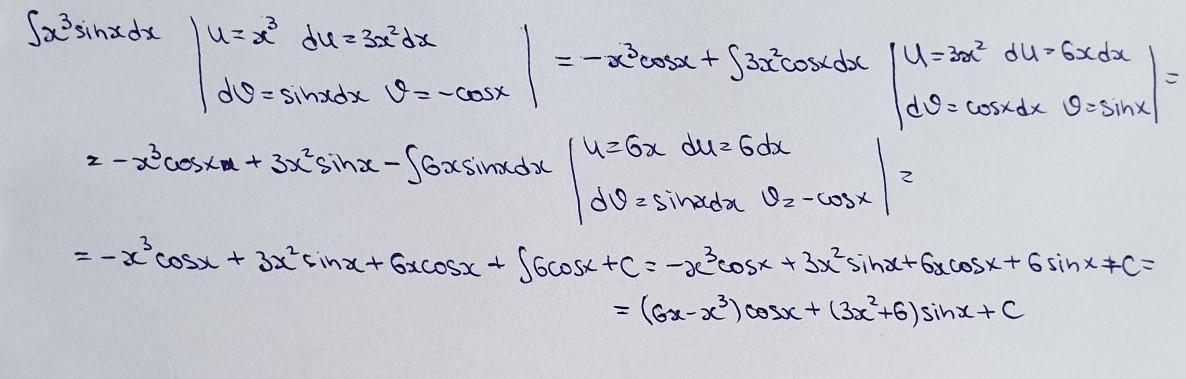 ∫x³sinxdx | u=x³ du=3x²dx dv=sinxdx v=-cosx | = -x³cosx + ∫3x²cosxdx | u=3x² du=6xdx dv=cosxdx v=sinx | =
= -x³cosx + 3x²sinx - ∫6xsinxdx | u=6x du=6dx dv=sinxdx v=-cosx | =
= -x³cosx + 3x²sinx + 6xcosx + ∫6cosx + C = -x³cosx + 3x²sinx + 6xcosx + 6sinx + C =
= (6x-x³)cosx + (3x²+6)sinx + C